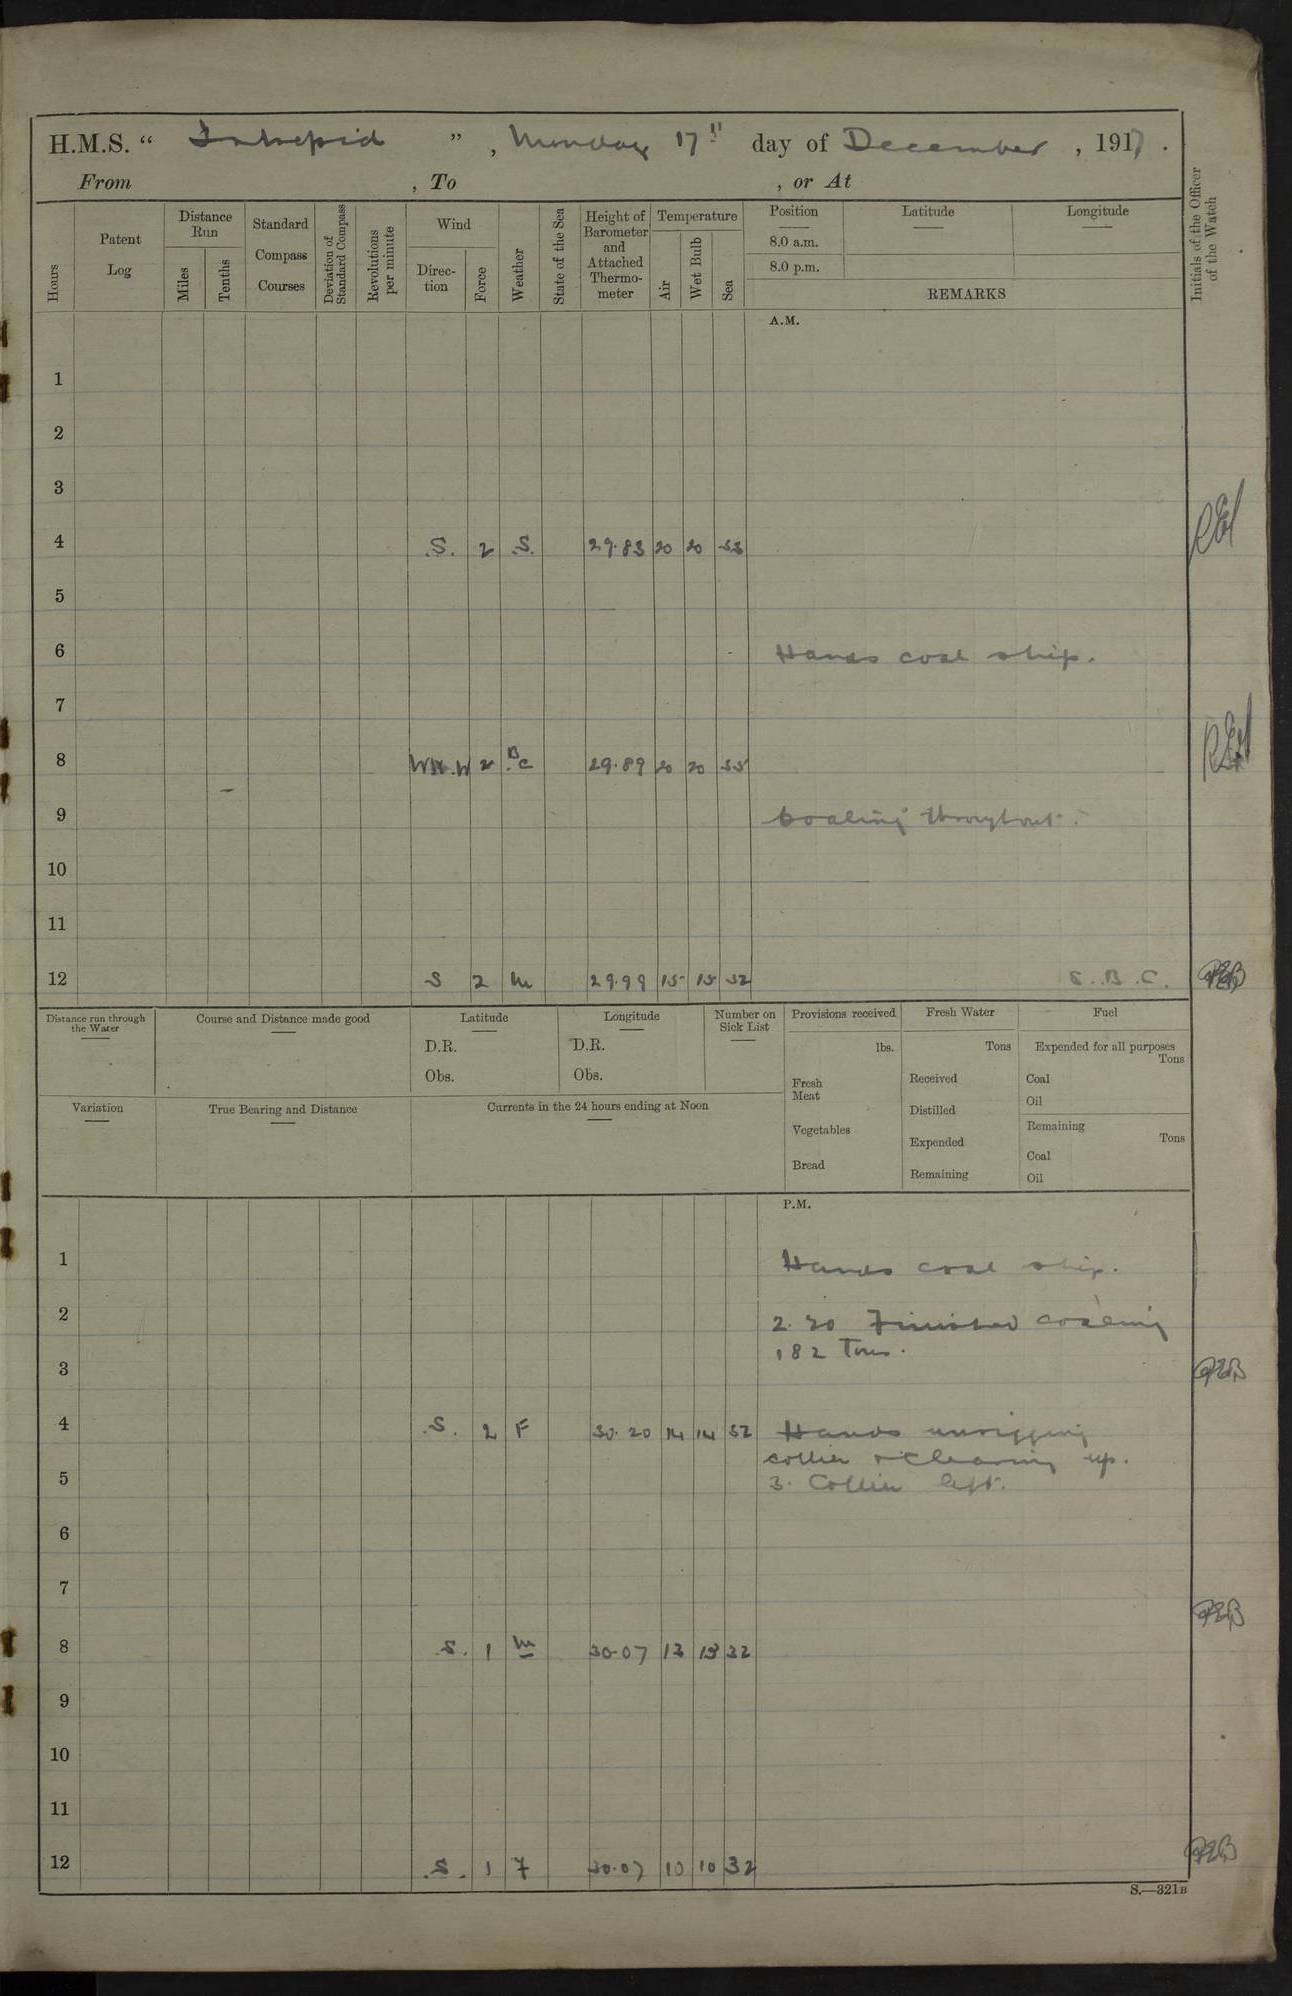 H.M.S. “ Intrepid ” , Monday 17th day of December , 1917 .
From , To , or At
Hours
Patent Log
Distance Run
Miles
Tenths
Standard Compass Courses
Deviation of Standard Compass
Revolutions per minute
Wind
Direc-tion
Force
Weather
State of the Sea
Height of Barometer and Attached Thermo-meter
Temperature
Air
Wet Bulb
Sea
Position Latitude Longitude
8.0 a.m.
8.0 p.m.
REMARKS
Initials of the Officer of the Watch
A.M.
1
2
3
4 S. 2 S. 29.83 20 20 33
5
6 Hands coal ship.
7
8 WN.W 2 B.C 29.89 20 20 33
9 Coaling throughout.
10
11
12 S 2 m 29.99 15 15 32 S.B.C. PEB
Distance run through the Water
Course and Distance made good
Latitude
D.R.
Obs.
Longitude
D.R.
Obs.
Number on Sick List
Provisions received
lbs.
Fresh Meat
Vegetables
Bread
Fresh Water
Tons
Received
Distilled
Expended
Remaining
Fuel
Expended for all purposes
Tons
Coal
Oil
Remaining
Tons
Coal
Oil
Variation
True Bearing and Distance
Currents in the 24 hours ending at Noon
P.M.
1 Hands coal ship.
2 2.20 Finished coaling
182 Tons.
3 PEB
4 S. 2 F 30.20 14 14 32 Hands unrigging
collier & Clearing up.
5 3. Collier left.
6
7
8 S. 1 m 30.07 13 13 32 PEB
9
10
11
12 S. 1 F 30.07 10 10 32 PEB
S.—321B